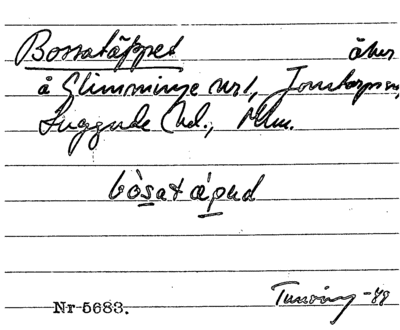 Bossatäppet åker
å Glimminge nr 1, Jonstorps sn,
Luggude hd., Mlm.
bòsatápəd
Nr 5683. Tuneving -88